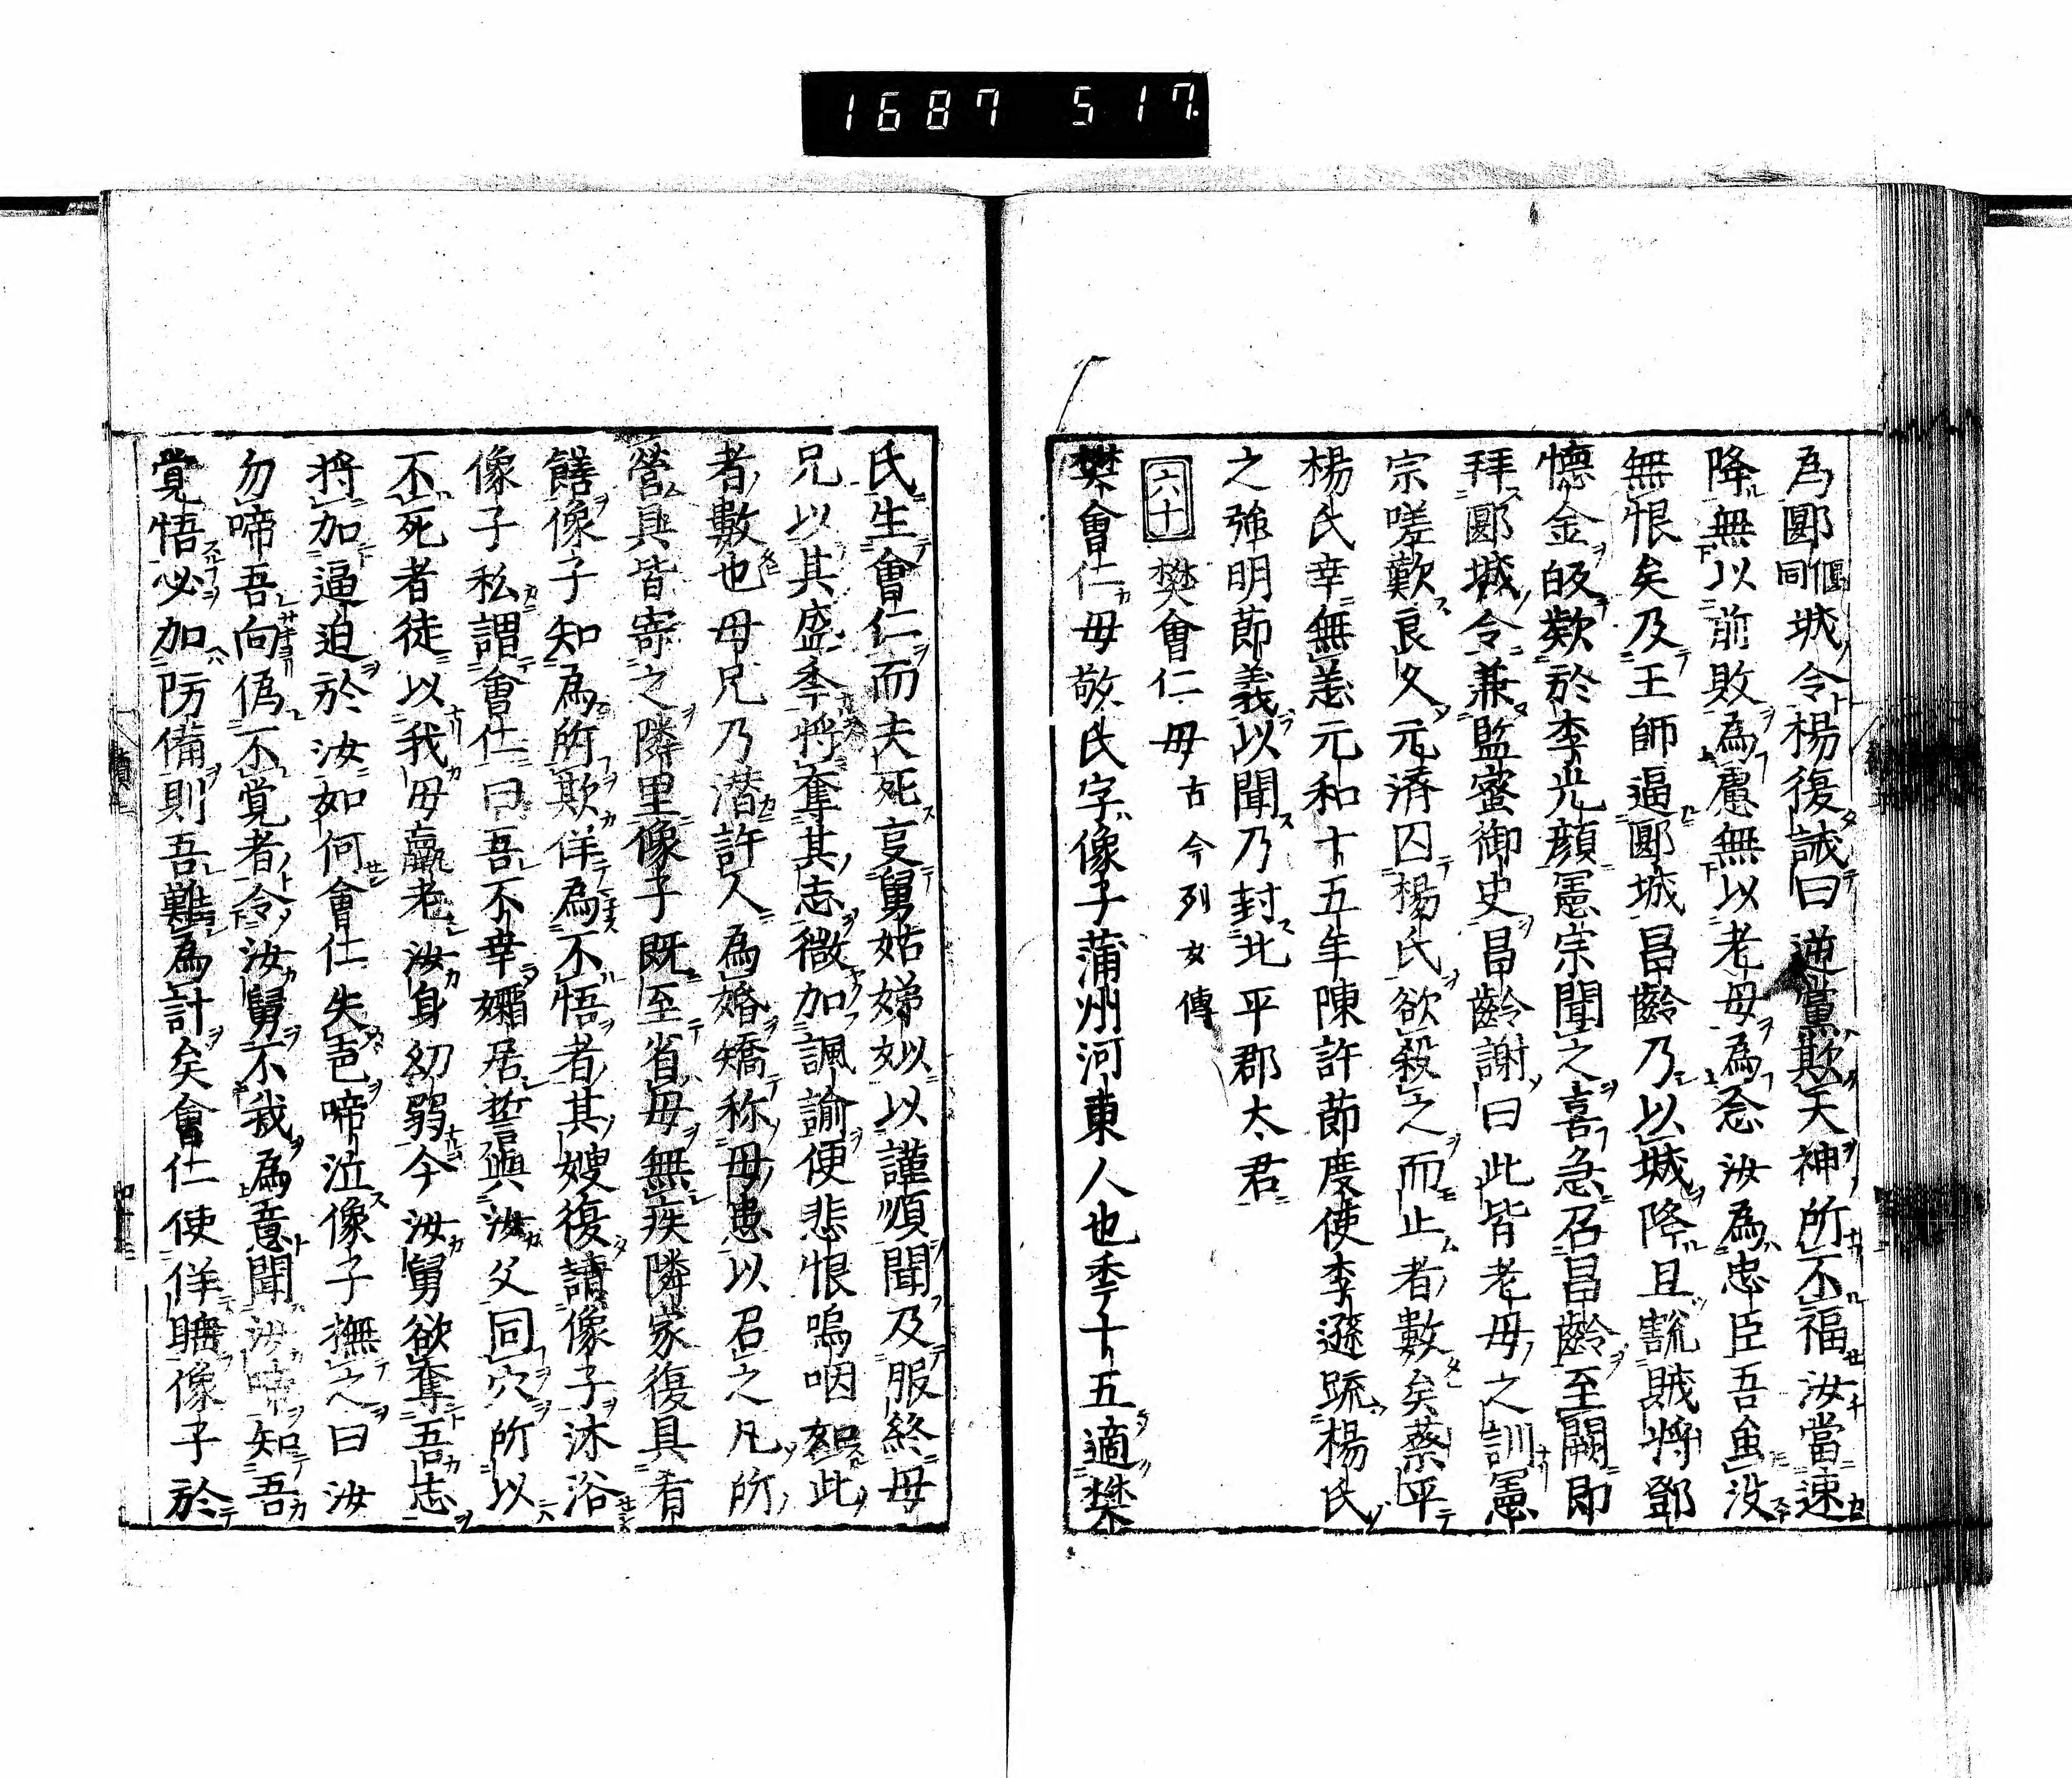 1687 517.
為郾偃同城令楊復誡曰逆黨欺天神所不福汝當速
降無以前敗為慮無以老母為念汝為忠臣吾虽没
無恨矣及王師逼郾城昌齡乃以城降且說賊將鄧
懷金皈欵於李光顔憲宗聞之喜急召昌齡至闕即
拜郾城令兼監察御史昌齡謝曰此皆老母之訓憲
宗嗟歎良久元濟囚楊氏欲殺之而止者數矣蔡平
楊氏幸無恙元和十五年陳許節度使李遜䟽楊氏
之強明節義以聞乃封北平郡太君
六十 樊會仁母 古今列女傳
樊會仁母敬氏字像子蒲州河東人也季十五適樊
氏生會仁而夫死叓舅姑娣姒以謹順聞及服終母
兄以其盛季將奪其志微加諷諭便悲恨嗚咽如此
者數也母兄乃潜許人為婚矯称母患以召之凡所
營具皆寄之隣里像子既至省母無疾隣家復具肴
饍像子知為所欺佯為不悟者其嫂復請像子沐浴
像子私謂會仁曰吾不幸孀居誓與汝父同穴所以
不死者徒以我母羸老汝身幼弱今汝舅欲奪吾志
将加逼迫於汝如何會仁失色啼泣像子撫之曰汝
勿啼吾向偽不覚者令汝舅不我為意聞汝啼知吾
覚悟必加防備則吾難為計矣會仁使佯睡像子於